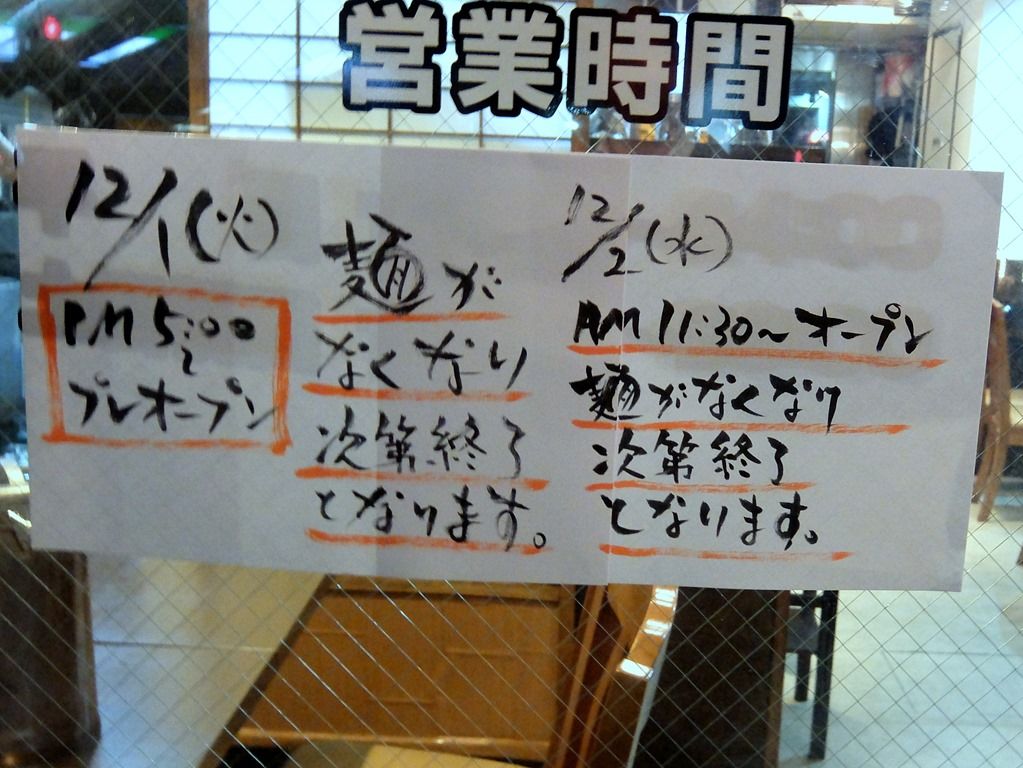 営業時間
12/1(火)
PM 5:00
~
プレオープン
麺が
なくなり
次第終了
となります。
12/2(水)
AM 11:30~オープン
麺がなくなり
次第終了
となります。